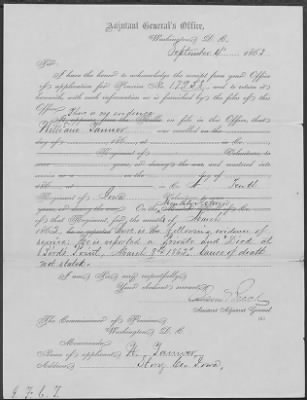 Adjutant General's Office,
Washington, D. C.
September 4", 1863
Sir:
I have the honor to acknowledge the receipt from your Office
of application for Pension No. and to return it
herewith, with such information as is furnished by the files of this
Office.
There is no evidence
on file in this Office, that
William Tanner was enrolled on the
day of 186 , at in Co.
Regiment of Volunteers, to
serve years, or during the war, and mustered into
service as a on the day of
186 , at in Co. A Tenth
Regiment of Iowa
years, or during the war. On the Monthly Return of Co.
of that Regiment, for the month of March
1863, in the following evidence of
service: He is reported a Private and Died at
March 8th 1863. Cause of death
not stated.
I am, Sir, very respectfully,
Your obedient servant,
Assistant Adjutant General
The Commissioner of Pensions,
Washington, D. C.
Memoranda.
Name of applicant, A. Tanner
Address, Story Co. Iowa,